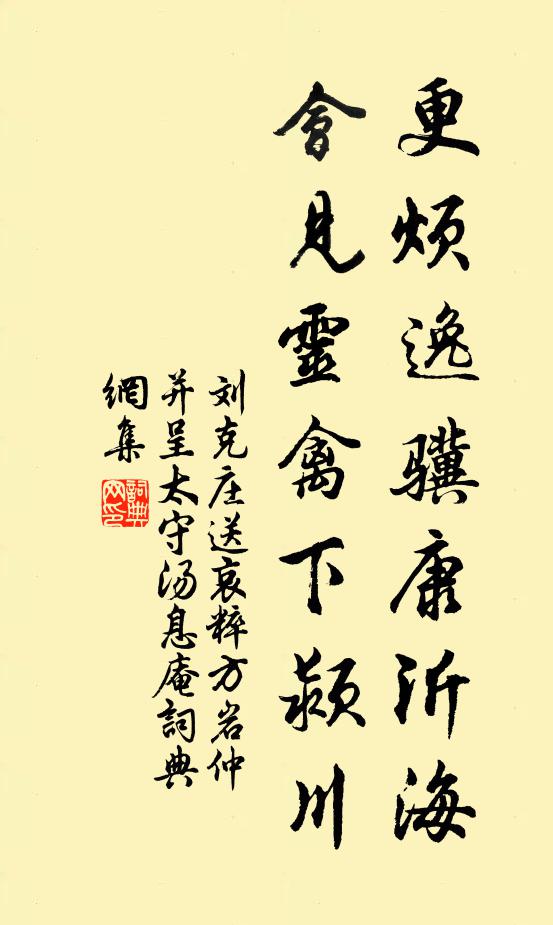 更烦逸骥康沂海
會見靈禽下颍川
刘克庄送哀粹方岩仲
并呈太守汤息庵詞典
網集
詞典網印